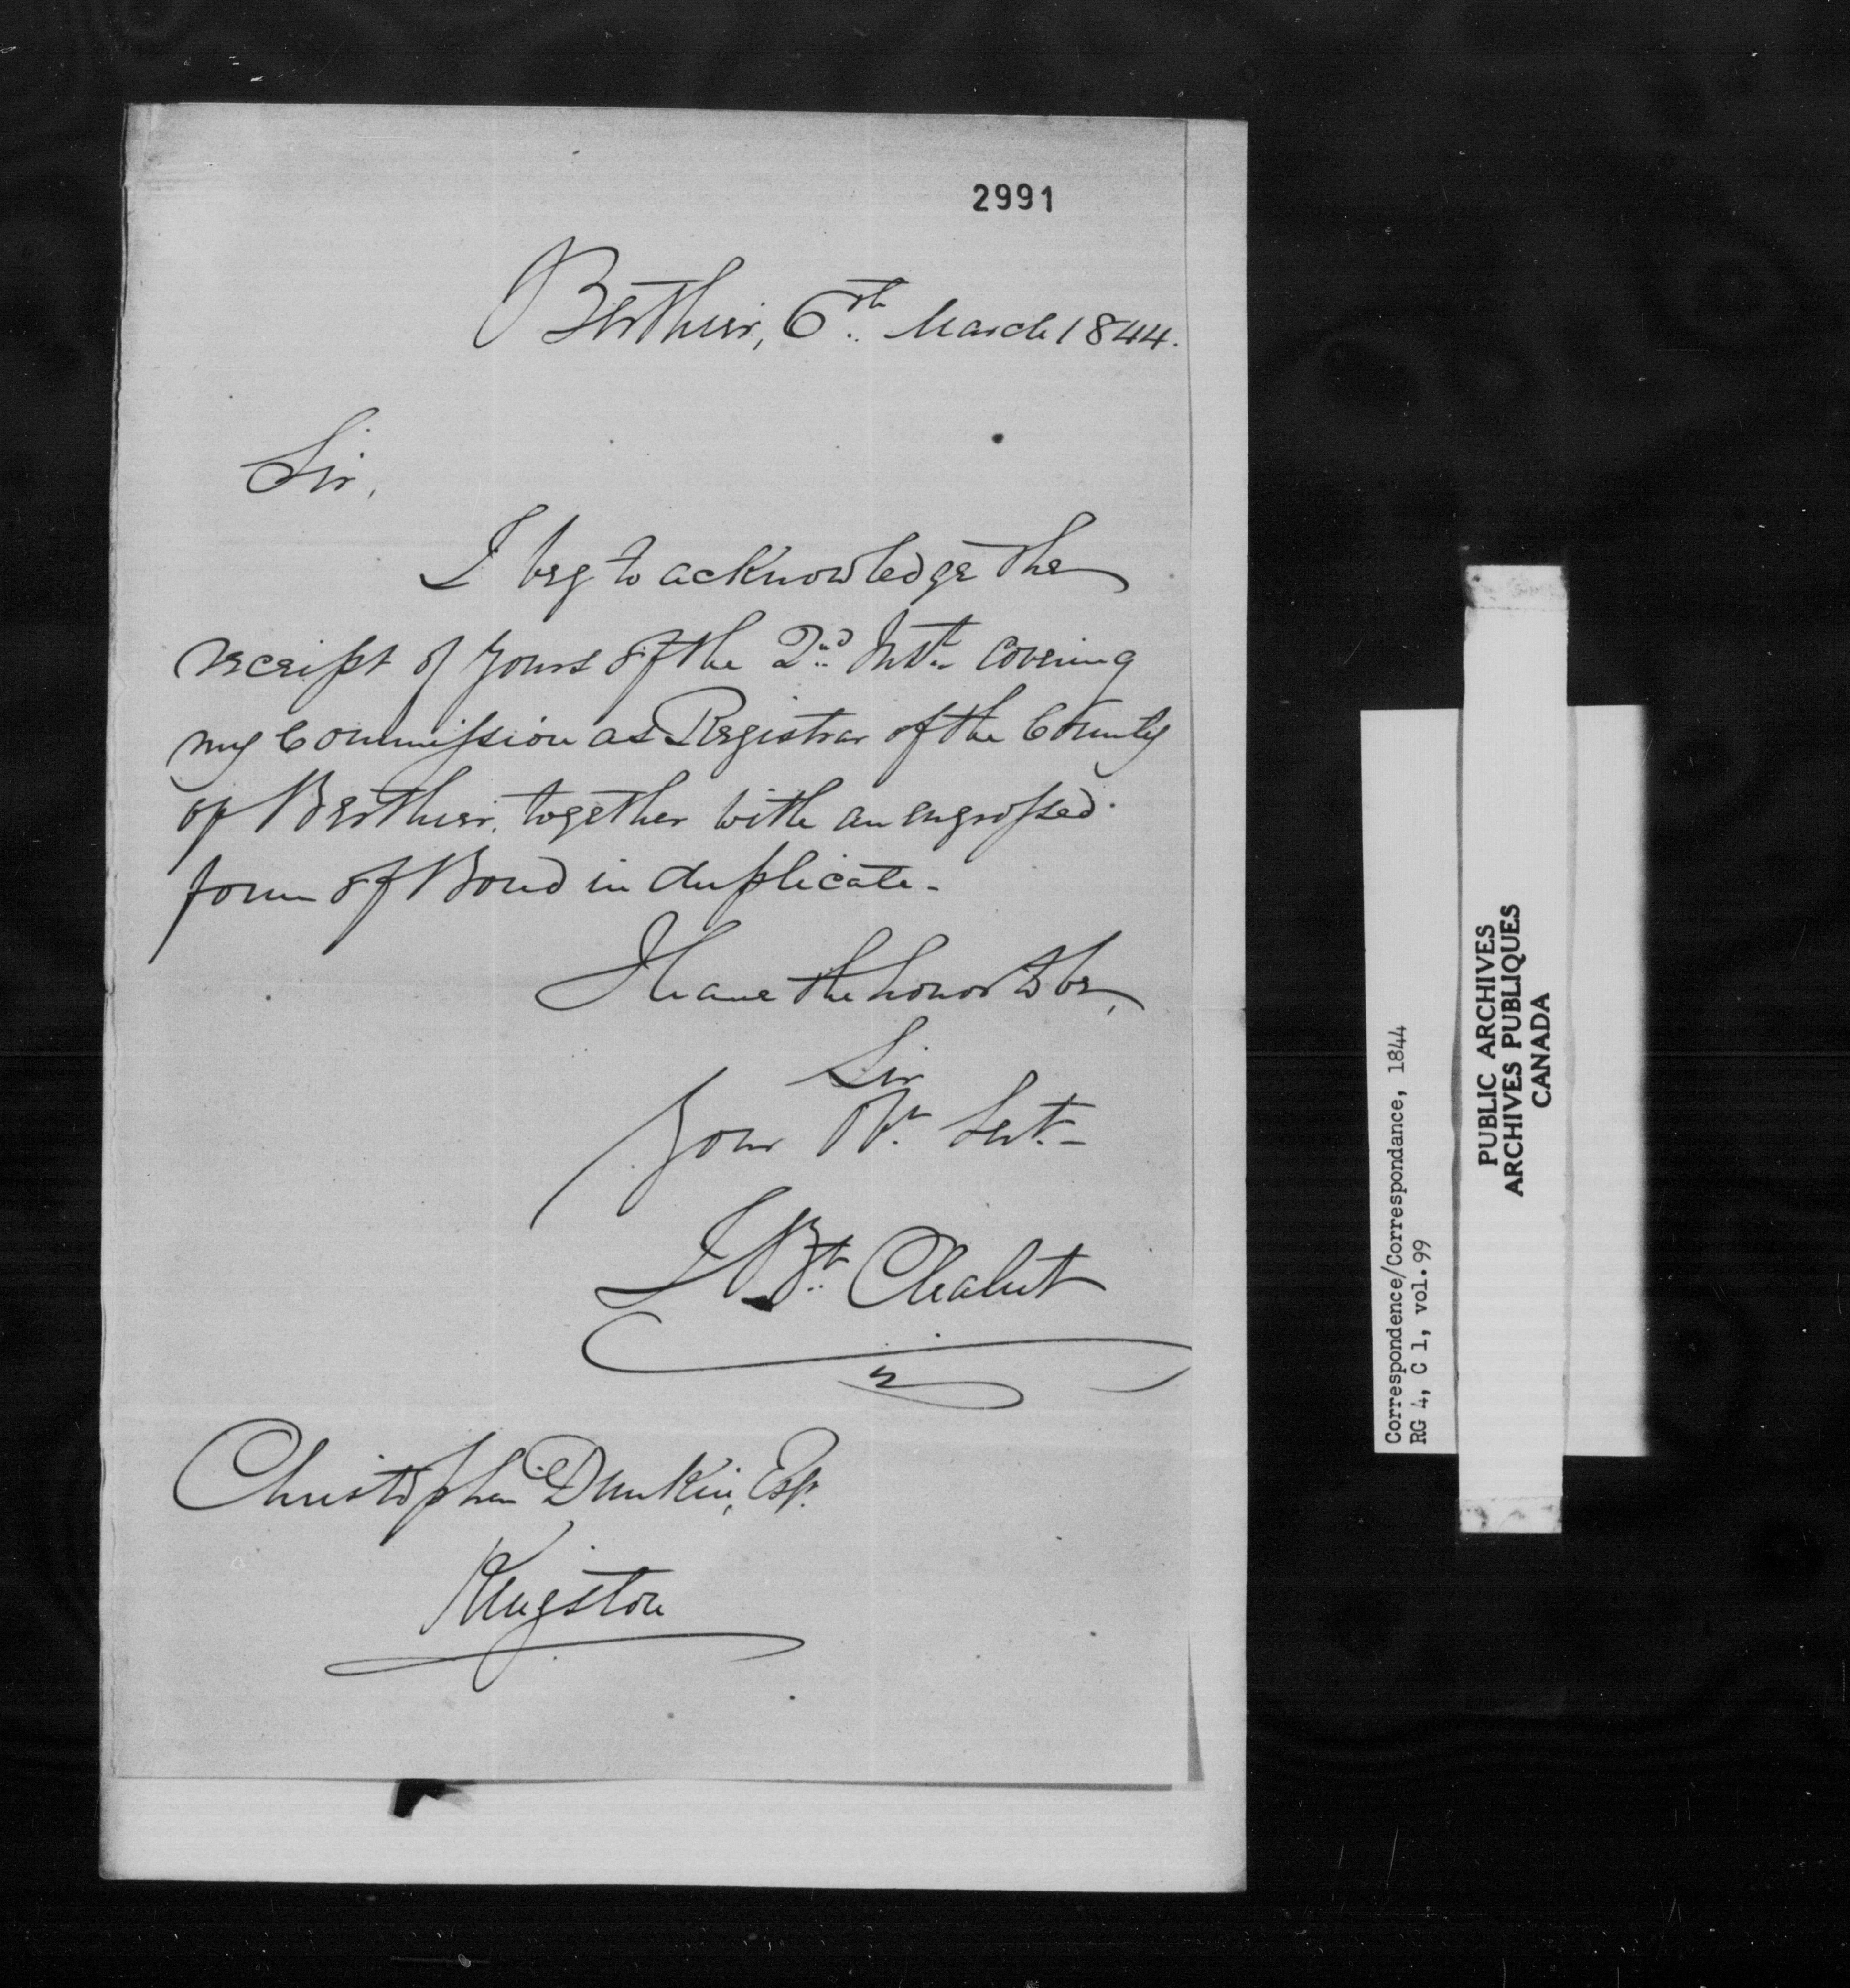 2991
Berthier, 6th March 1844.
Sir,
I beg to acknowledge the
receipt of yours of the 2nd Inst. covering
my Commission as Registrar of the County
of Berthier, together with an engrossed
form of Bond in duplicate.
I have the honor to be,
Sir
Your Ob. Servt.
J Bt. Chalut
Christopher Dunkin, Esq.
Kingston
Correspondence/Correspondance, 1844
RG 4, C 1, vol. 99
PUBLIC ARCHIVES
ARCHIVES PUBLIQUES
CANADA